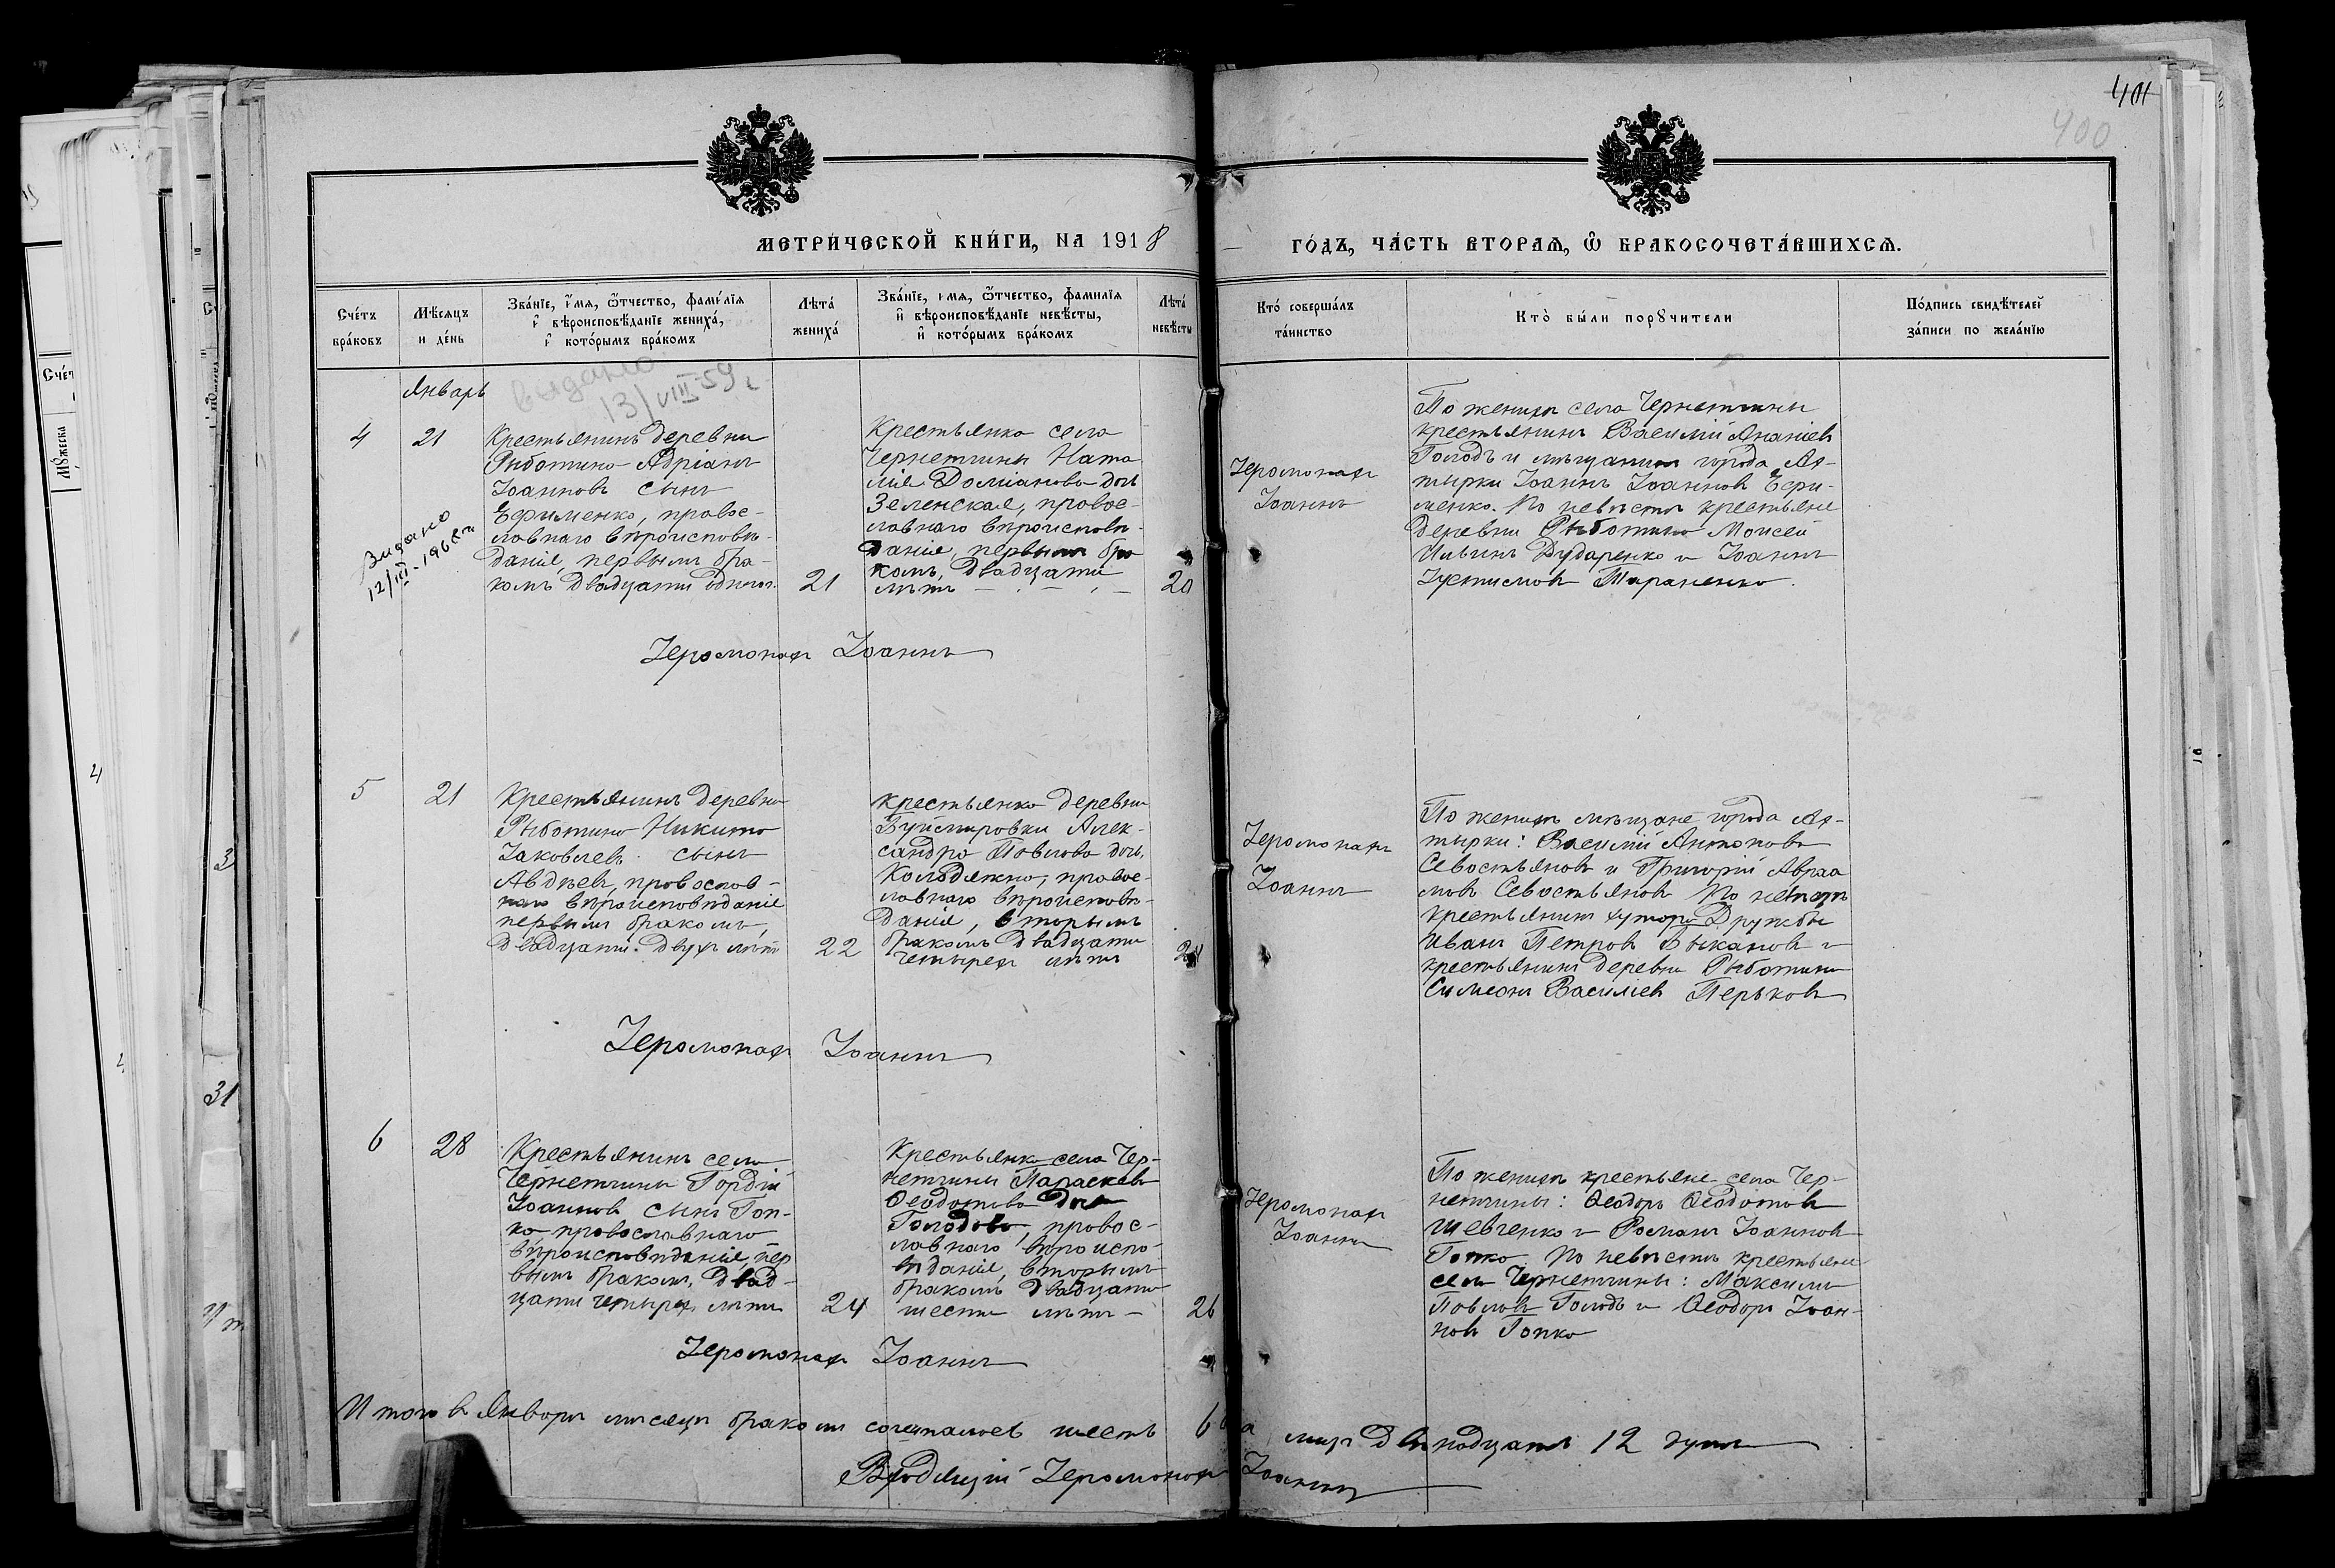 401
400
МЕТРИ́ЧЕСКОЙ КНИ́ГИ, НА 1918
ГО́ДЪ, ЧА́СТЬ ВТОРАѦ, Ѽ БРАКОСОЧЕТА́ВШИХСѦ.
Сче́тъ
бра́ковъ
Мѣ́сяцъ
и де́нь
Зва́нїе, и҆́мя, ѻ҆́тчество, фами́лїя
и҆ вѣроисповѣ́данїе жениха́,
и҆ кото́рымъ бра́комъ
Лѣта́
жениха́
Зва́нїе, и҆мя, ѻ҆́тчество, фамилїя
и҆ вѣроисповѣ́данїе невѣ́сты,
и҆ кото́рымъ бра́комъ
Лѣта́
невѣсты
Кто́ соверша́лъ
та́инство
Кто̀ бы́ли порꙋчители
По́дпись свидѣ́телей
за́писи по жела́нїю
Январь
выдано
13/VIII 59 г
4
21
Видано
12/III-1968 г
Крестьянинъ деревни
Рыботино Адріанъ
Іоанновъ сынъ
Ефименко, правос-
лавнаго вѣроисповѣ-
данія, первымъ бра-
комъ двадцати одного
21
Крестьянка села
Чернетчины Ната
лія Доміанова дочь
Зеленская, правос-
лавнаго вѣроисповѣ-
данія, первымъ бра
комъ, двадцати
лѣтъ
20
Іеромонахъ
Іоаннъ
По женихѣ села Чернетчины
крестьянинъ Василій Ананіевъ
Голодъ и мѣщанинъ города Ах-
тырки Іоаннъ Іоанновъ Ефи-
менко. По невѣстѣ крестьяне
деревни Рыботино Моисей
Ильинъ Дударенко и Іоаннъ
Іустиновъ Тараненко.
Іеромонахъ Іоаннъ
5
21
Крестьянинъ деревни
Рыботино Никита
Іаковлевъ сынъ
Авдѣевъ, православ-
наго вѣроисповѣданія
первымъ бракомъ,
двадцати двухъ лѣтъ
22
Крестьянка деревни
Буймировки Алек-
сандра Павлова дочь
Колодяжна, правос-
лавнаго вѣроисповѣ-
данія, вторымъ
бракомъ двадцати
четырехъ лѣтъ
24
Іеромонахъ
Іоаннъ
По женихѣ мѣщане города Ах-
тырки: Василій Антоновъ
Севостьяновъ и Григорій Авраа
мовъ Севостьяновъ По невѣстѣ
крестьянинъ хутора Дружбы
Иванъ Петровъ Быкановъ и
крестьянинъ деревни Рыботино
Симеонъ Василіевъ Перьковъ
Іеромонахъ Іоаннъ
6
28
Крестьянинъ села
Чернетчины Гордій
Іоанновъ сынъ Гоп-
ко, православнаго
вѣроисповѣданія, пер
вымъ бракомъ, двад-
цати четырехъ лѣтъ
24
Крестьянка села Чер-
нетчины Параскева
Ѳеодотова дочь
Голодова, правос-
лавнаго вѣроиспо-
вѣданія, вторымъ
бракомъ двадцати
шести лѣтъ
26
Іеромонахъ
Іоаннъ
По женихѣ крестьяне села Чер-
нетчины: Ѳеодоръ Ѳеодотовъ
Шевченко и Романъ Іоанновъ
Гопко По невѣстѣ крестьяне
села Чернетчины: Максимъ
Павловъ Голодъ и Ѳеодоръ Іоан-
новъ Гопко
Іеромонахъ Іоаннъ
Итого въ Январѣ мѣсяцѣ бракомъ сочеталось шесть 6 а лицъ двѣнадцать 12 душъ
Іеромонахъ Іоаннъ